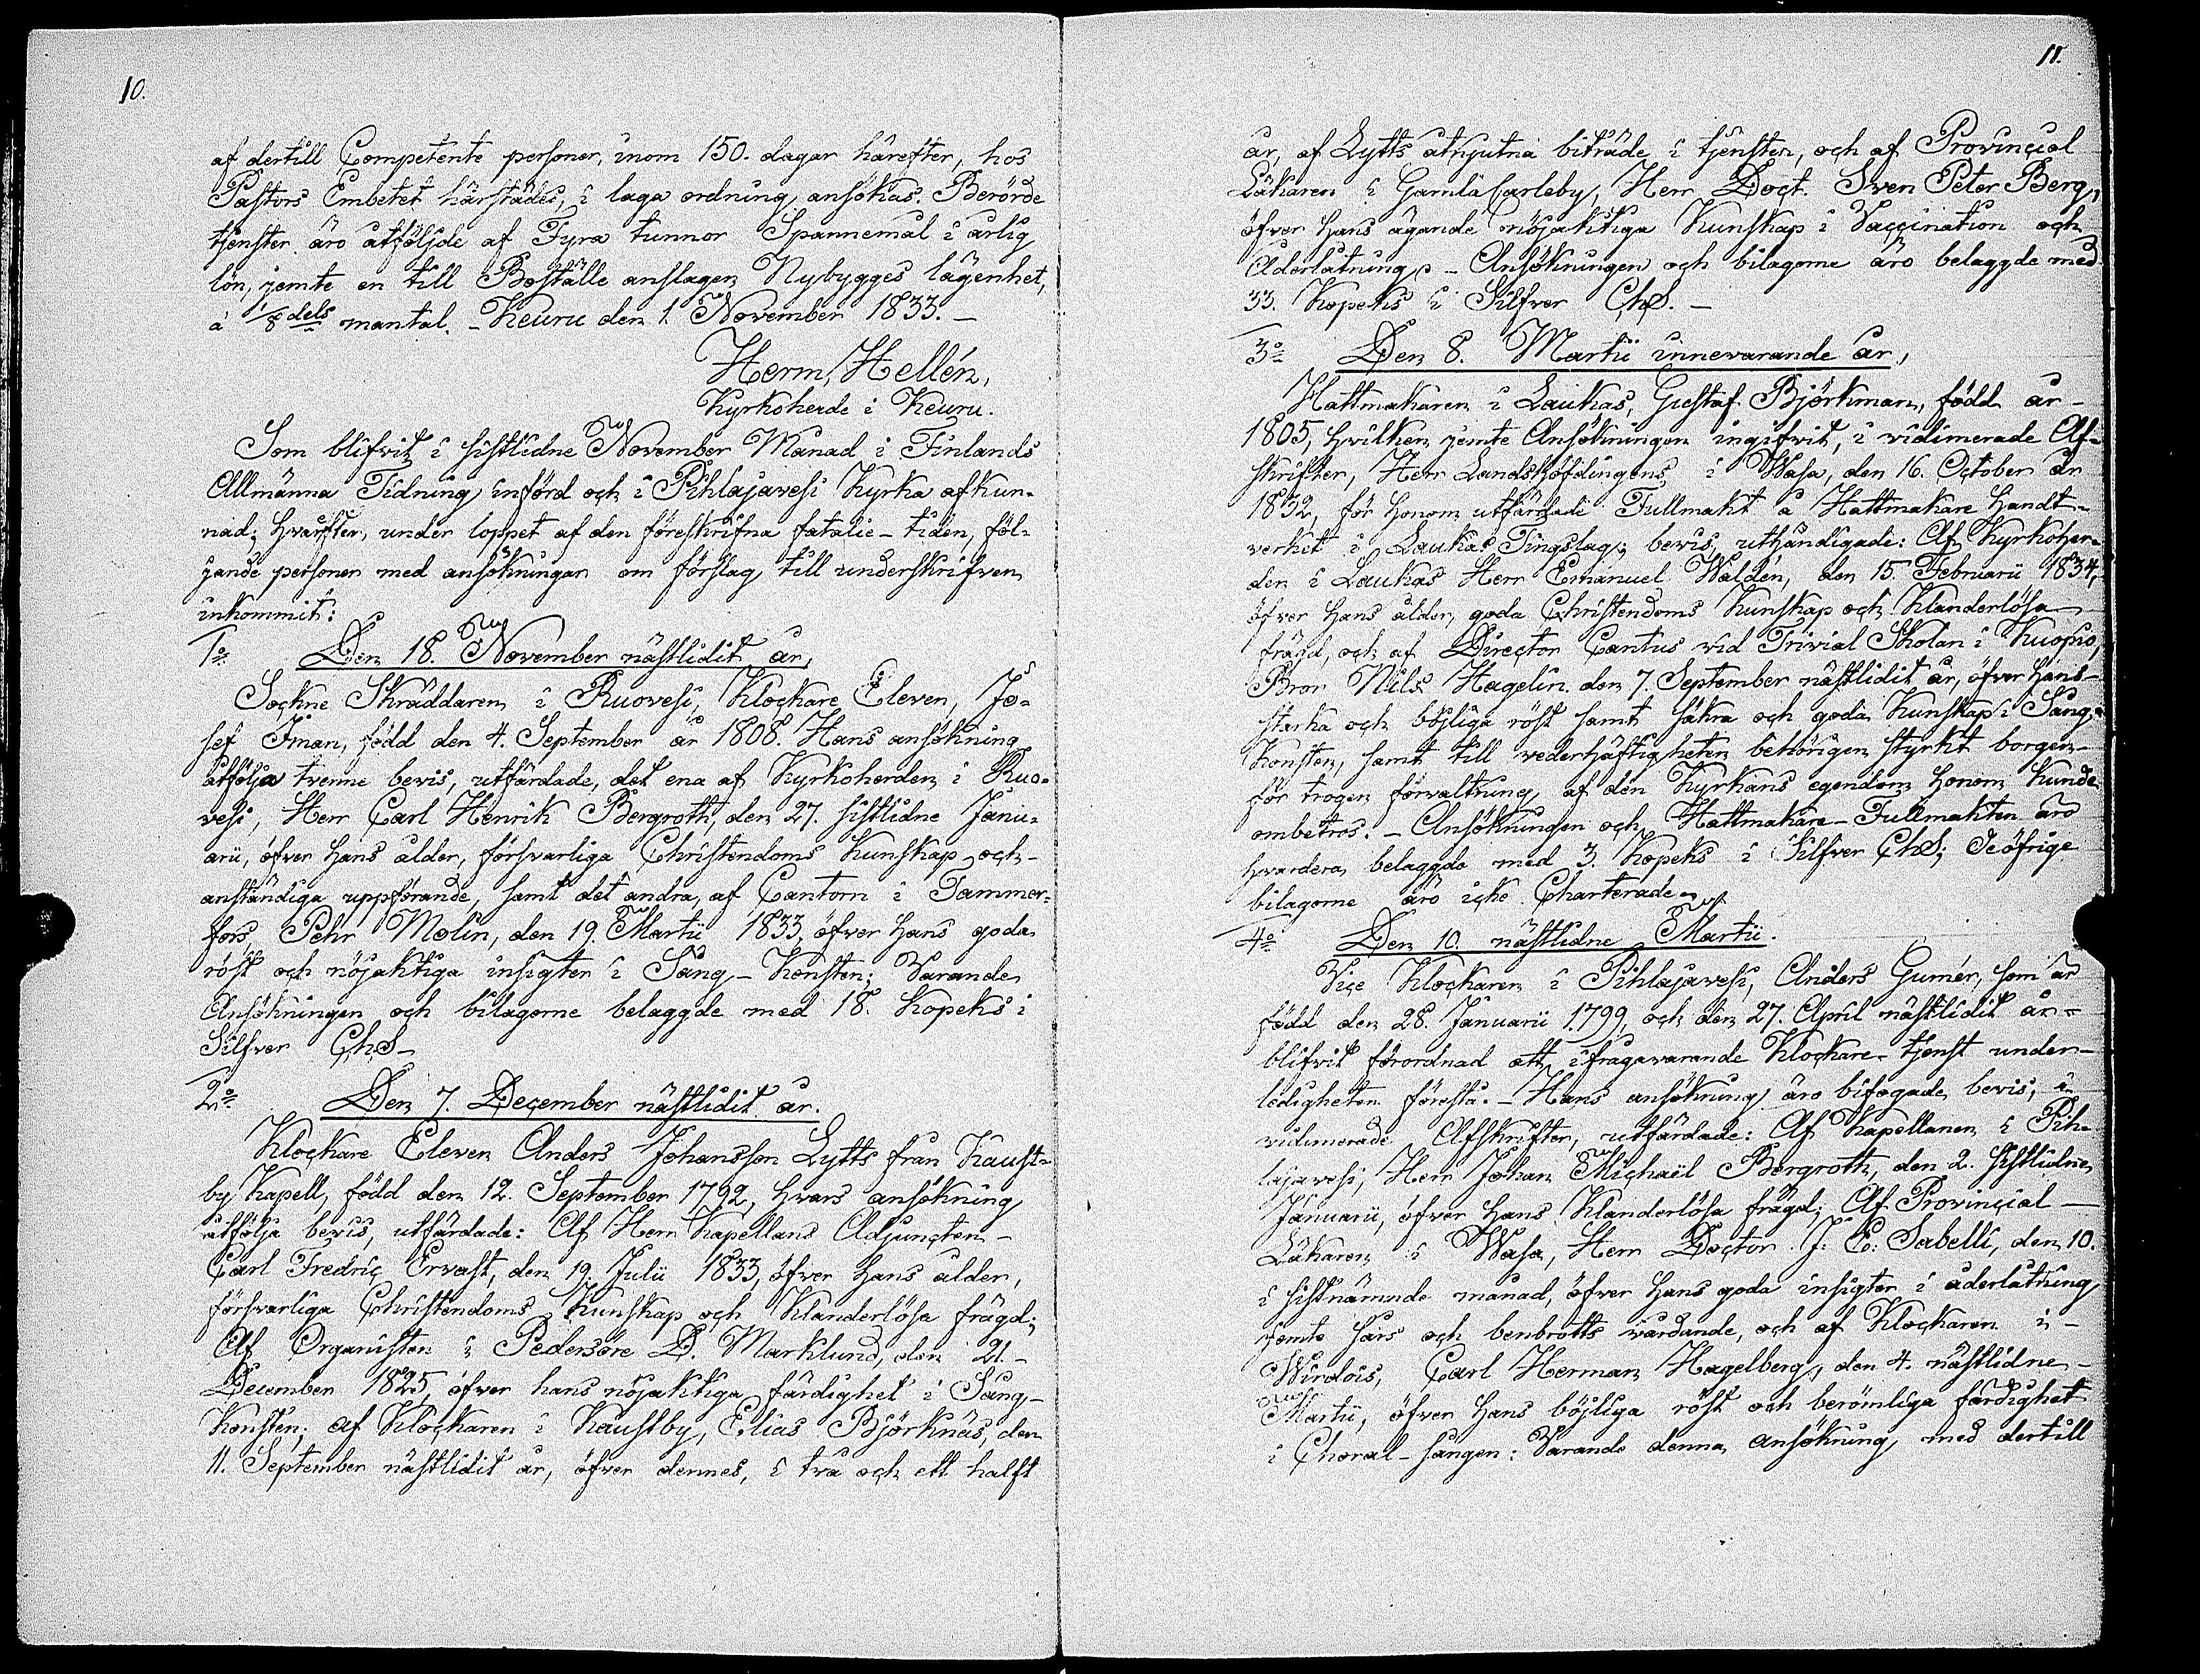 10.
af dertill Competente personer, inom 150. dagar härefter, hos
Pastors Embetet härstädes, i laga ordning ansökas. Berörde
tjenster äro åtföljde af Fyra tunnor Spannemål i årlig
lön, jemte en till Boställe anslagen Nybygges lägenhet,
à 1/8 dels mantal. - Keuru den 1. November 1833. -
Herm. Hellén,
Kyrkoherde i Keuru.
Som blifvit i sistlidne November Månad i Finlands
Allmänna Tidning införd och i Pihlajavesi Kyrka afkun-
nad; hvarefter, under loppet af den föreskrifna fatalie-tiden, föl-
jande personer med ansökningar om förslag till underskrifven
inkommit:
1o Den 18. November nästlidit år,
Sockne Skräddaren i Ruovesi, Klockare Eleven, Jo-
sef Iman, född den 4. September år 1808. Hans ansökning
åtfölja tvenne bevis, utfärdade, det ena af Kyrkoherden i Ruo-
vesi, Herr Carl Henrik Bergroth, den 27. sistlidne Janu-
arii, öfver hans ålder, försvarliga Christendoms Kunskap och
anständiga uppförande, samt det andra, af Cantorn i Tammer-
fors, Pehr Molin, den 19. Martii 1833, öfver hans goda
röst och nöjaktiga insigter i Sång-Konsten; Varande
Ansökningen och bilagorne belaggde med 18. Kopeks i
Silfver ChS-
2o Den 7. December nästlidit år.
Klockare Eleven Anders Johansson Lytts från Kaust-
by Kapell, född den 12. September 1792, hvars ansökning
åtfölja bevis, utfärdade: Af Herr Kapellans Adjuncten
Carl Fredric Ervast, den 19. Julii 1833, öfver hans ålder,
försvarliga Christendoms Kunskap och Klanderlösa frägd;
Af Organisten i Pedersöre D. Marklund, den 21.
December 1825, öfver hans nöjaktiga färdighet i Sång-
Konsten; af Klockaren i Kaustby, Elias Björknäs, den
11. September nästlidit år, öfver dennes, i två och ett halft
11.
år, af Lytts åtnjutna biträde i tjensten, och af Provincial
Läkaren i Gamla Carleby, Herr Doct. Sven Peter Berg,
öfver hans ägande nöjaktiga Kunskap i Vaccination och
Åderlåtning. - Ansökningen och bilagorne äro belaggde med
33. Kopeks i Silfver ChS. -
3o Den 8. Martii innevarande år,
Hattmakaren i Laukas, Gustaf Björkman, född år
1805, hvilken jemte Ansökningen ingifvit, i vidimerade Af-
skrifter, Herr Landshöfdingens, i Wasa, den 16. October år
1832, för honom utfärdade Fullmakt å Hattmakare Handt-
verket i Laukas Tingslag; bevis uthändigade: Af Kyrkoher-
den i Laukas Herr Emanuel Waldén, den 15. Februarii 1834,
öfver hans ålder, goda Christendoms Kunskap och Klanderlösa
frägd, och af Director Cantus vid Trivial Skolan i Kuopio,
Bror Nils Hagelin den 7. September nästlidit år, öfver hans
starka och böjliga röst samt säkra och goda Kunskap i Sång-
Konsten, samt till vederhäftigheten behörigen styrkt borgen
för trogen förvaltning af den Kyrkans egendom honom kunde
ombetros. - Ansökningen och Hattmakare-Fullmakten äro
hvardera belaggde med 3. Kopeks i Silfver ChS; De öfrige
bilagorne äro icke Charterade.
4o Den 10. nästlidne Martii.
Vice Klockaren i Pihlajavesi, Anders Gumér, som är
född den 28. Januarii 1799, och den 27. April nästlidit år
blifvit förordnad att ifrågavarande Klockare-tjenst under
ledigheten förestå. - Hans ansökning äro bifogade bevis, i
vidimerade Afskrifter, utfärdade: Af Kapellanen i Pih-
lajavesi, Herr Johan Michaël Bergroth, den 2. sistlidne
Januarii, öfver hans Klanderlösa frägd; Af Provincial
Läkaren i Wasa, Herr Doctor J: E: Sabelli, den 10.
i sistnämnde månad, öfver hans goda insigter i åderlåtning
jemte sårs och benbrotts vårdande, och af Klockaren i
Wirdois, Carl Herman Hagelberg, den 4. nästlidne
Martii, öfver hans böjliga röst och berömliga färdighet
i Choral-sången: Varande denna ansökning med dertill